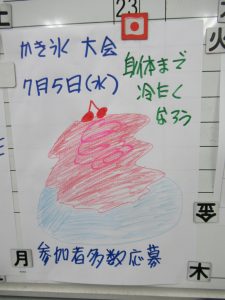 23
かき氷 大会
7月5日(水)
身体まで
冷たく
なろう
参加者多数応募
土
火
月
木
金